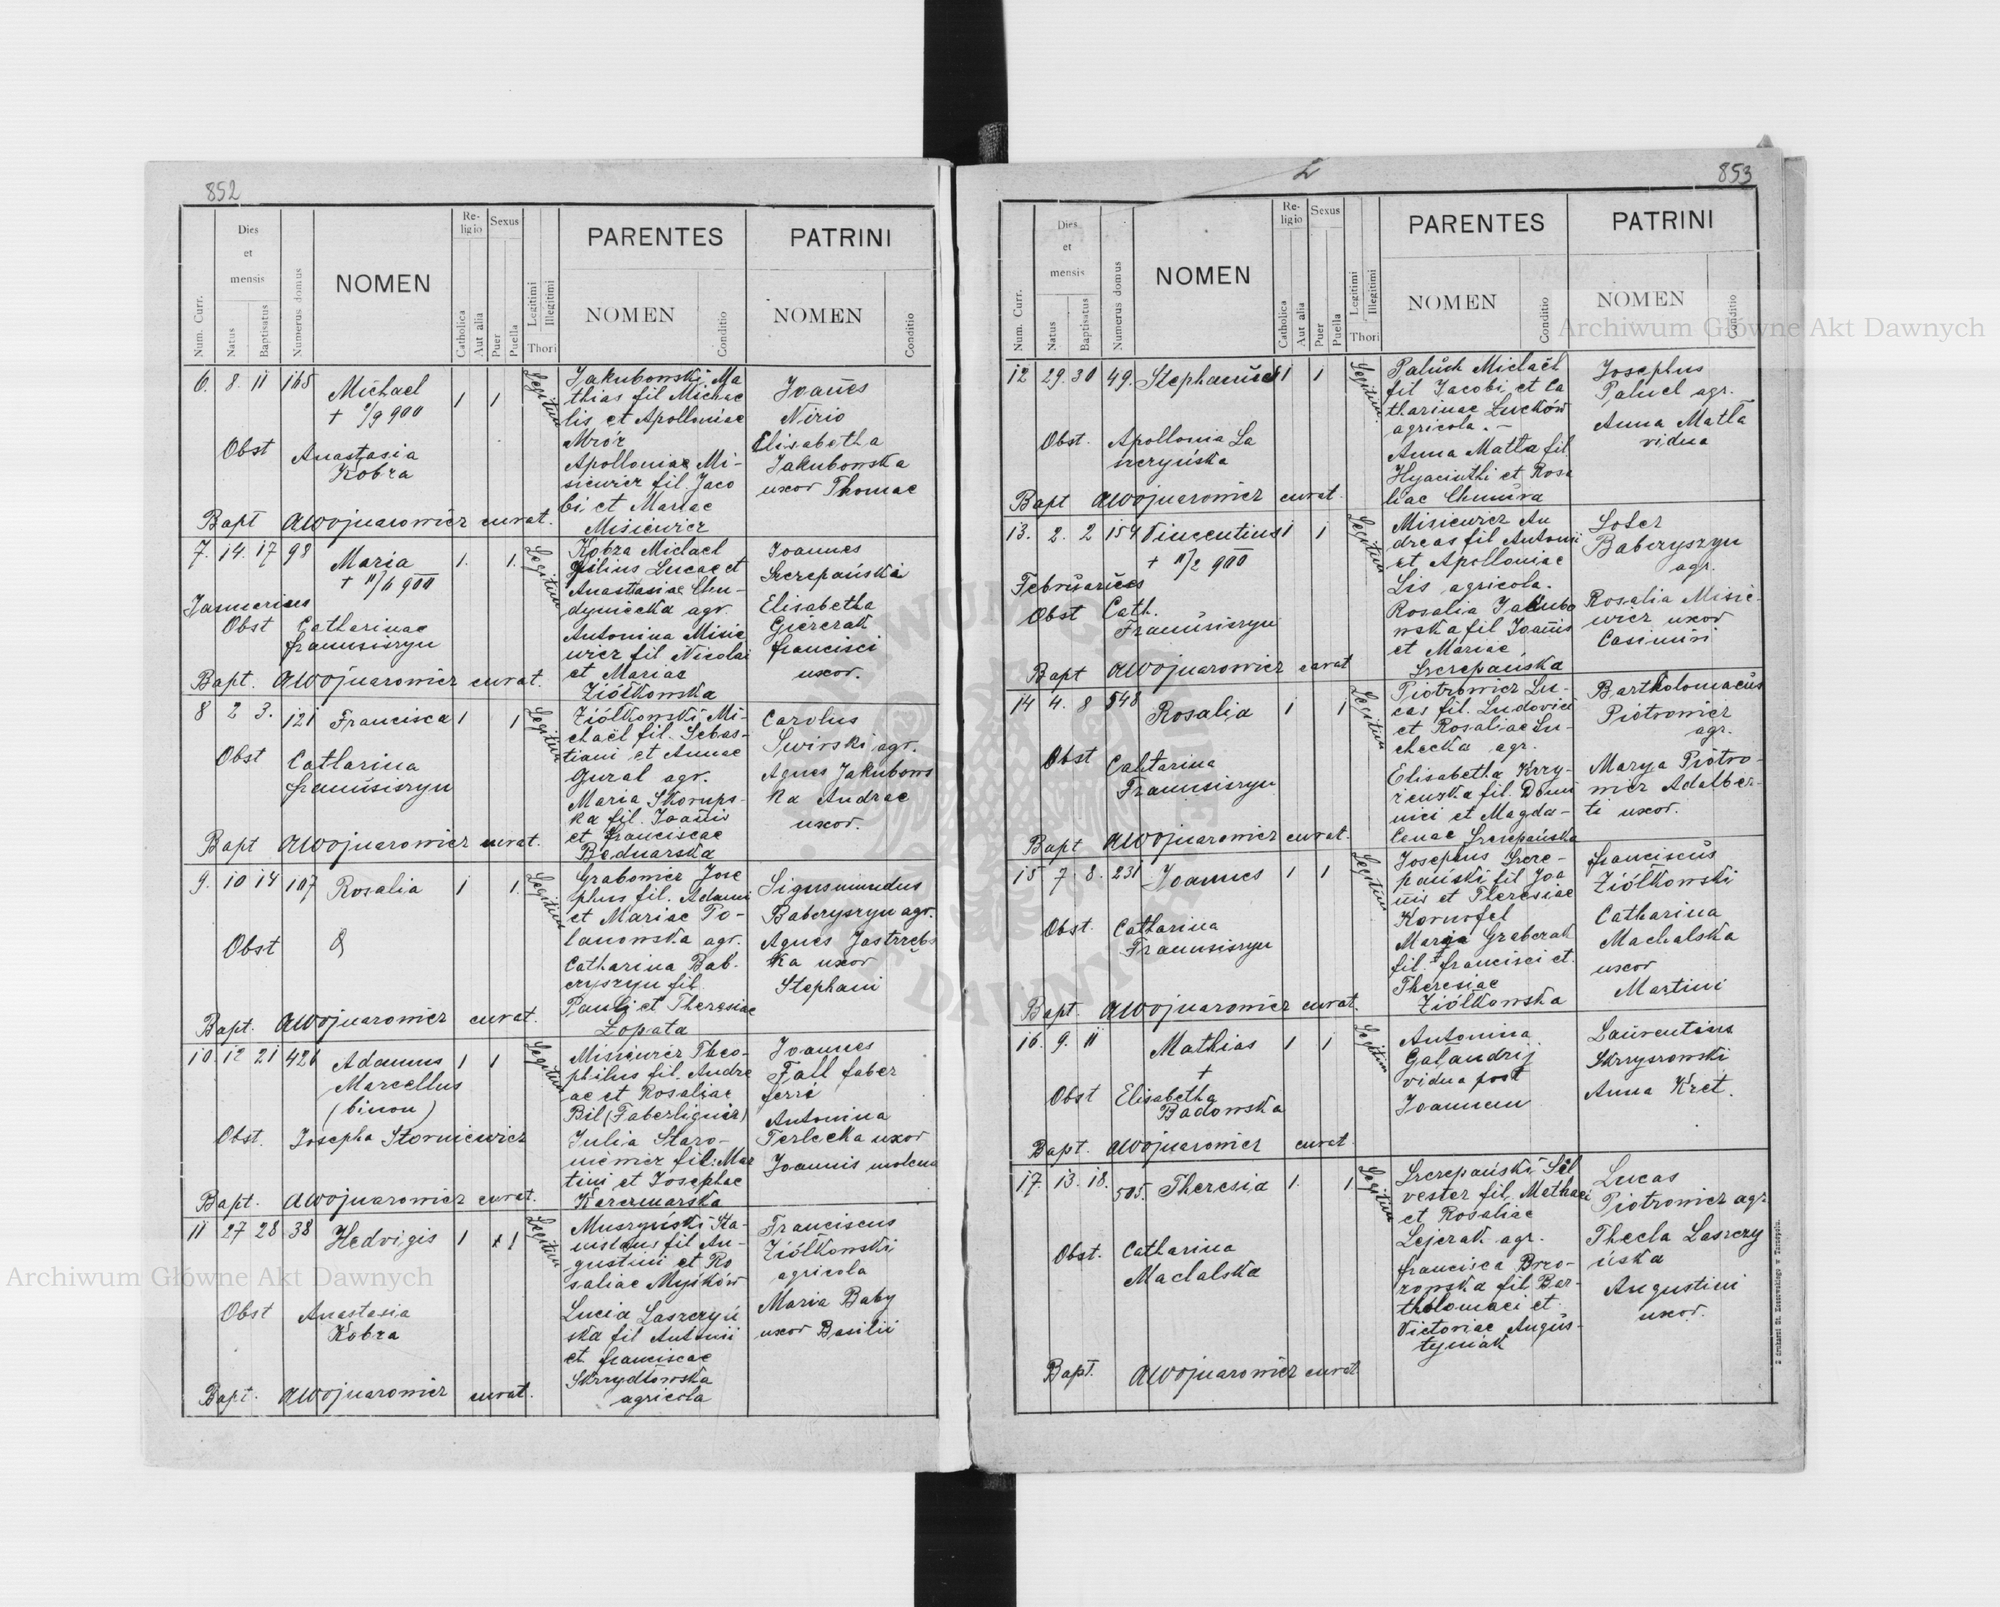 852
Num. Curr.
Dies
et
mensis
Natus
Baptisatus
Numerus domus
NOMEN
Re-
ligio
Catholica
Aut alia
Sexus
Puer
Puella
Legitimi
Illegitimi
Thori
PARENTES
NOMEN
Conditio
PATRINI
NOMEN
Conditio
6. 8. 11 165 Michael 1 1 Legitim
+ 9/9 900
Obst Anastasia
Kobza
Bapt AWojnarowicz curat.
Jakubowski Ma
thias fil Michae
lis et Apolloniae
Mróz
Apolloniae Mi-
siewicz fil. Jaco
bi et Mariae
Misiewicz
Joañes
Nirio
Elisabetha
Jakubowska
uxor Thomae
7. 14. 17 98 Maria 1. 1. Legitim
+ 11/6 900
Januarius
Obst Catharinae
Franusiszyn
Bapt. AWojnarowicz curat.
Kobza Michael
filius Lucae et
Anastasiae Chu-
dyniecka agr.
Antonina Misie
wicz fil Nicolai
et Mariae
Ziółkowska
Joannes
Szczepański
Elisabetha
Gierczak
francisci
uxor.
8 2 3. 121 Francisca 1 1 Legitim
Obst Catharina
franusiszyn
Bapt AWojnarowicz curat.
Ziółkowski Mi-
chaël fil. Sebas-
tiani et Annae
Gural agr.
Maria Skorups-
ka fil. Joanis
et franciscae
Bednarska
Carolus
Swirski agr.
Agnes Jakubows
ka Andrae
uxor.
9. 10 14 107 Rosalia 1 1. Legitim
Obst
Bapt. AWojnarowicz curat.
Grabowicz Jose
phus fil. Adami
et Mariae Po-
lanowska agr.
Catharina Bab.
czyszyn fil.
Pauli et Theresiae
Łopata
Sigusmundus
Babczyszyn agr.
Agnes Jastrzębs
ka uxor
Stephani
10. 12 21 426 Adamus 1 1 Legitim
Marcellus
(binom)
Obst. Josepha Storniewicz
Bapt. AWojnarowicz curat.
Misiewicz Theo-
philus fil. Andre
ae et Rosaliae
Bil (Faber lignir)
Julia Staro-
niewicz fil: Mar
tini et Josephae
Karczmarska
Joannes
Fall faber
ferri
Antonina
Terlecka uxor
Joannis
11 27 28 38 Hedvigis 1 1 Legitim
Obst Anastasia
Kobza
Bapt. AWojnarowicz curat.
Muszyński Sta-
nislaus fil Au-
gustini et Ro
saliae Myśków
Lucia Laszczyń
ska fil Antonii
et franciscae
Skrzydłowska
agricola
Franciscus
Ziółkowski
agricola
Maria Baby
uxor Basilii
853
Num. Curr.
Dies
et
mensis
Natus
Baptisatus
Numerus domus
NOMEN
Re-
ligio
Catholica
Aut alia
Sexus
Puer
Puella
Legitimi
Illegitimi
Thori
PARENTES
NOMEN
Conditio
PATRINI
NOMEN
Conditio
12 29. 30 49. Stephanus 1 1 Legitim
Obst. Apollonia La
szczyńska
Bapt AWojnarowicz curat.
Paluch Michaël
fil Jacobi et Ca
tharinae Łucków
agricola. -
Anna Matla fil
Hyacinthi et Rosa
liae Chmura
Josephus
Paluch agr.
Anna Matla
vidua
13. 2. 2 154 Vincentius 1 1 Legitim
+ 11/2 900
Februarius
Obst Cath.
Franusiszyn
Bapt AWojnarowicz curat
Misiewicz An
dreas fil Antoni
et Apolloniae
Lis agricola.
Rosalia Jakubo
wska fil Joañis
et Mariae
Szczepańska
Babczyszyn
agr.
Rosalia Misie-
wicz uxor
Casimiri
14 4. 8 548 Rosalia 1 1 Legitim
Obst Cahtarina
Franusiszyn
Bapt AWojnarowicz curat.
Piotrowicz Lu-
cas fil. Ludovici
et Rosaliae Su-
checka agr.
Elisabetha Krzy-
fil. Domi
nici et Magda-
lenae Szczepańska
Bartholomaeus
Piotrowicz
agr.
Marya Piotro-
wicz Adalber-
ti uxor.
15 7 8. 231 Joannes 1 1 Legitim
Obst. Catharina
Franusiszyn
Bapt. AWojnarowicz curat.
Josephus Szcze-
pański fil Joa
nis et Theresiae
Kornofel
Maria Grabczak
fil. francisci et.
Theresiae
Ziółkowska
franciscus
Ziółkowski
Catharina
Machalska
uxor
Martini
16. 9. 11 Mathias 1 1 Legitim
+
Obst Elisabetha
Badowska
Bapt. AWojnarowicz curat
Antonina
Gałandzij
vidua post
Joannem
Laurentius
Skrzyszowski
Anna Kret.
17. 13. 18. 505. Theresia 1. 1 Legitim
Obst. Catharina
Machalska
Bapt. AWojnarowicz curat
Szczepański Sil
vester fil. Mathaei
et Rosaliae
Lejczak agr.
francisca Brzo-
zowska fil Bar-
tholomaei et.
Victoriae Augus-
tyniak
Lucas
Piotrowicz agr.
Thecla Laszczy
ńska
Augustini
uxor.
Z drukarni St. Kossowskiego w Tarnopolu.
Archiwum Główne Akt Dawnych
Archiwum Główne Akt Dawnych